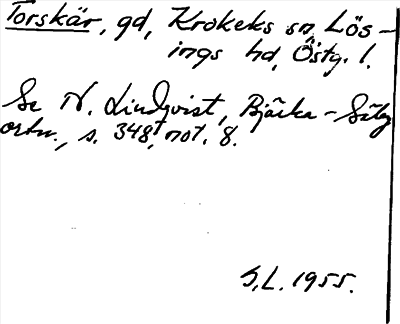 Torskär, gd, Krokeks sn, Lös-
ings hd, Östg. l.
Se N. Lindqvist, Bjärka-Säby
ortn., s. 348, not. 8.
S.L. 1955.